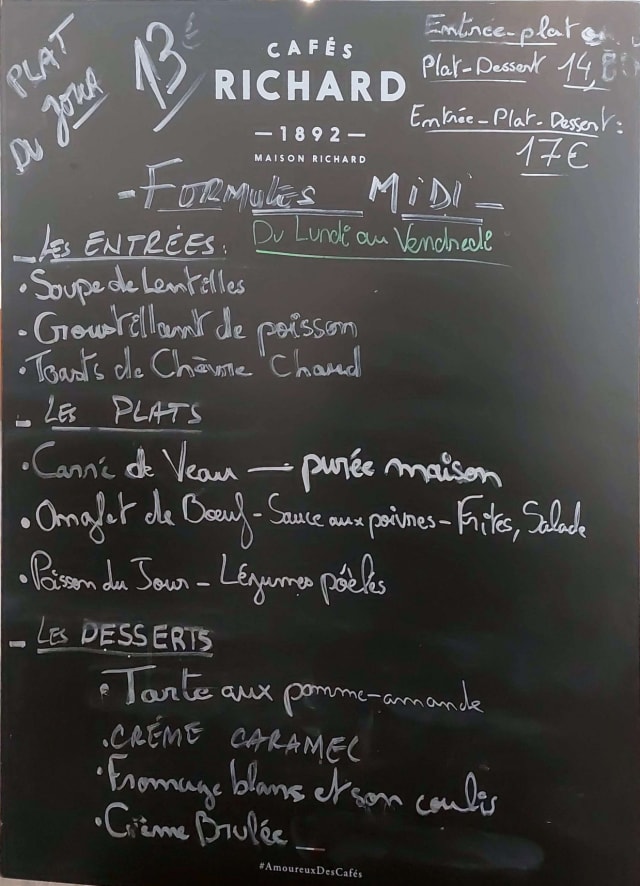 PLAT
DU JOUR
13 €
CAFÉS
RICHARD
—1892—
MAISON RICHARD
Entrée-plat ou
Plat-Dessert 14,80
Entrée-Plat-Dessert:
17€
- FORMULES MiDi -
Du Lundi au Vendredi
- LES ENTRÉES:
• Soupe de Lentilles
• Croustillant de poisson
• Toasts de Chèvre Chaud
- LES PLATS
• Carré de Veau — purée maison
• Onglet de Boeuf - Sauce aux poivres - Frites, Salade
• Poisson du Jour - Légumes poêlés
- LES DESSERTS
• Tarte aux pomme-amande
• CRÉME CARAMEL
• Fromage blanc et son coulis
• Crème Brulée
#AmoureuxDesCafés